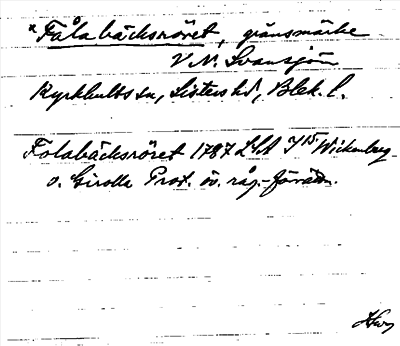 * Fålabäcksröret, gränsmärke
V.N. Svansjön
Kyrkhults sn, Listers hd, Blek. l.
Folabäcksröret 1787 LSA J15 Wickenberg
o. Girolla Prot. öv. råg.-förrättn.